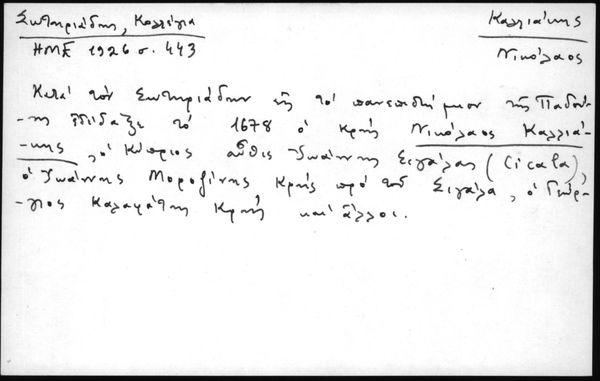 Σωτηριάδης, Κολλέγια
ΗΜΕ 1926 σ. 443
Καλλιάκης
Νικόλαος
Κατά τόν Σωτηριάδην εἰς τό πανεπιστήμιον τῆς Παδού-
-ης ἐδίδαξε τό 1678 ὁ Κρής Νικόλαος Καλλιά-
-κης, ὁ Κύπριος αὖθις Ἰωάννης Σιγάλας (Cicala),
ὁ Ἰωάννης Μοροζίνης Κρής πρό τοῦ Σιγάλα, ὁ Γεώρ-
-γιος Καλαφάτης Κρής καί ἄλλοι.